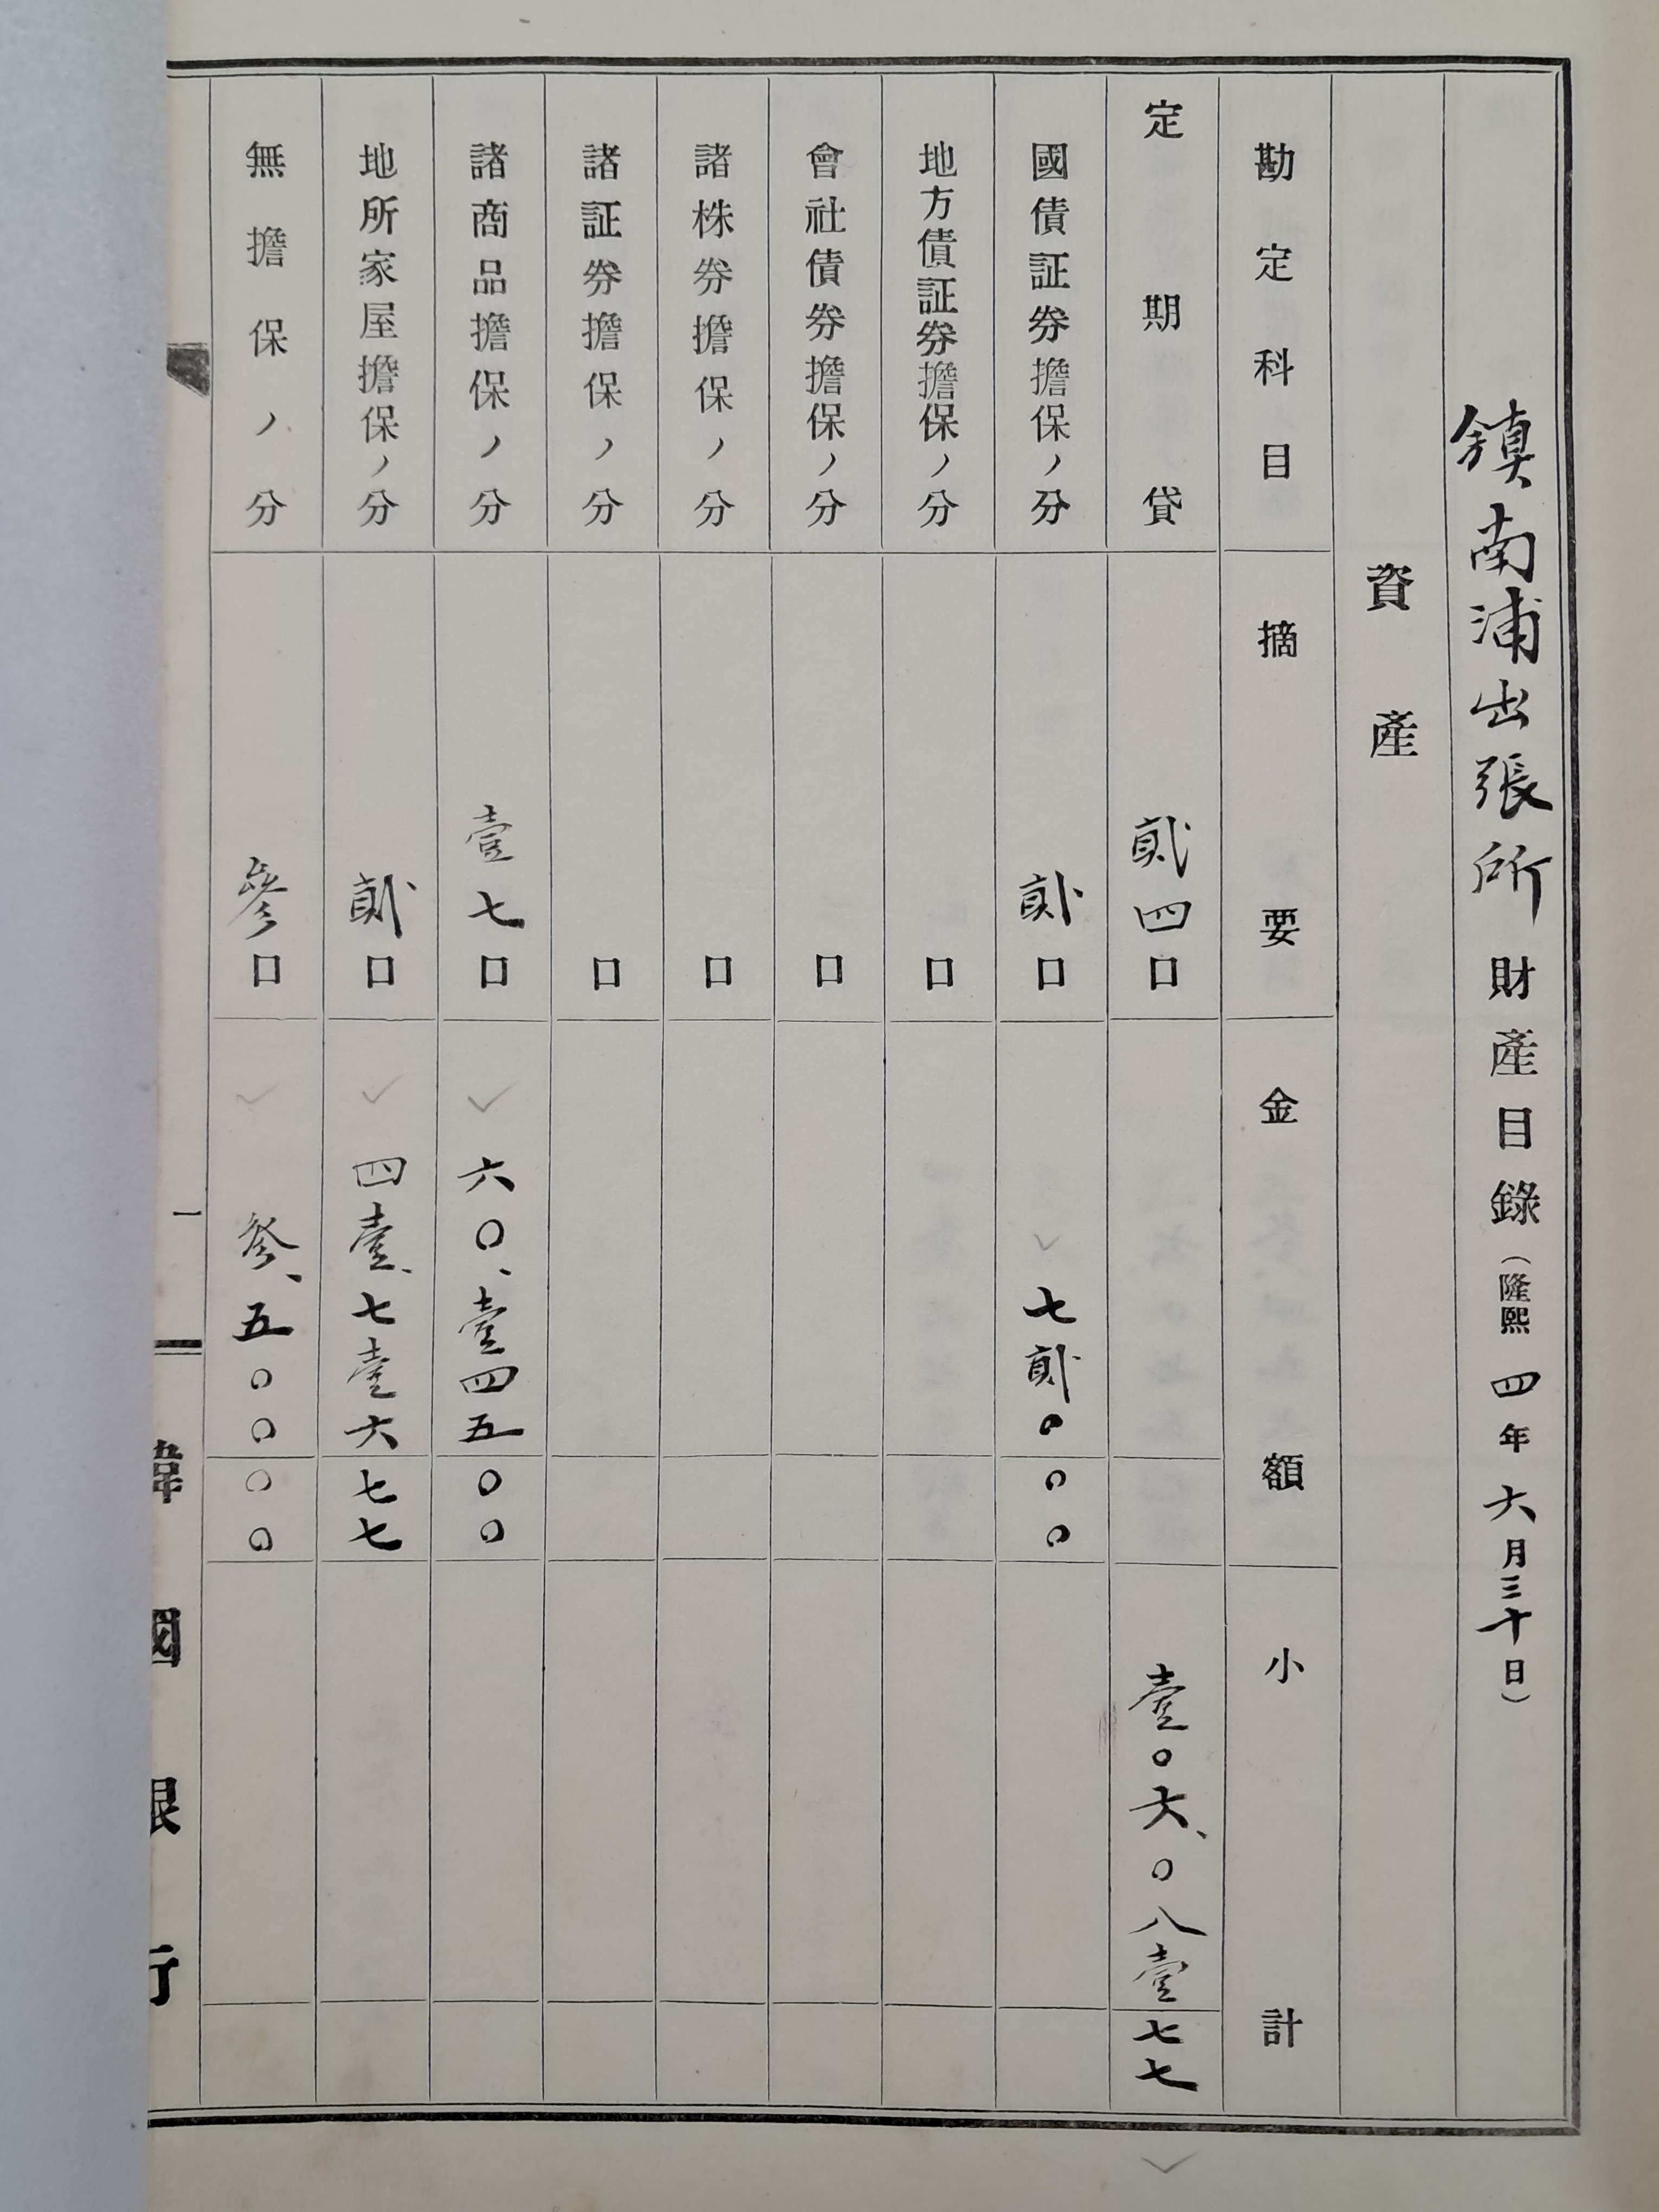 鎮南浦出張所財産目錄(隆熙四年六月三十日)
資産
勘定科目 摘要 金額 小計
定期貸 貳四口 壹〇六、〇八壹七七
國債証券擔保ノ分 貳口 七貳〇〇〇
地方債証券擔保ノ分 口
會社債券擔保ノ分 口
諸株券擔保ノ分 口
諸証券擔保ノ分 口
諸商品擔保ノ分 壹七口 六〇、壹四五〇〇
地所家屋擔保ノ分 貳口 四壹、七壹六七七
無擔保ノ分 參口 參、五〇〇〇〇
一 韓國銀行